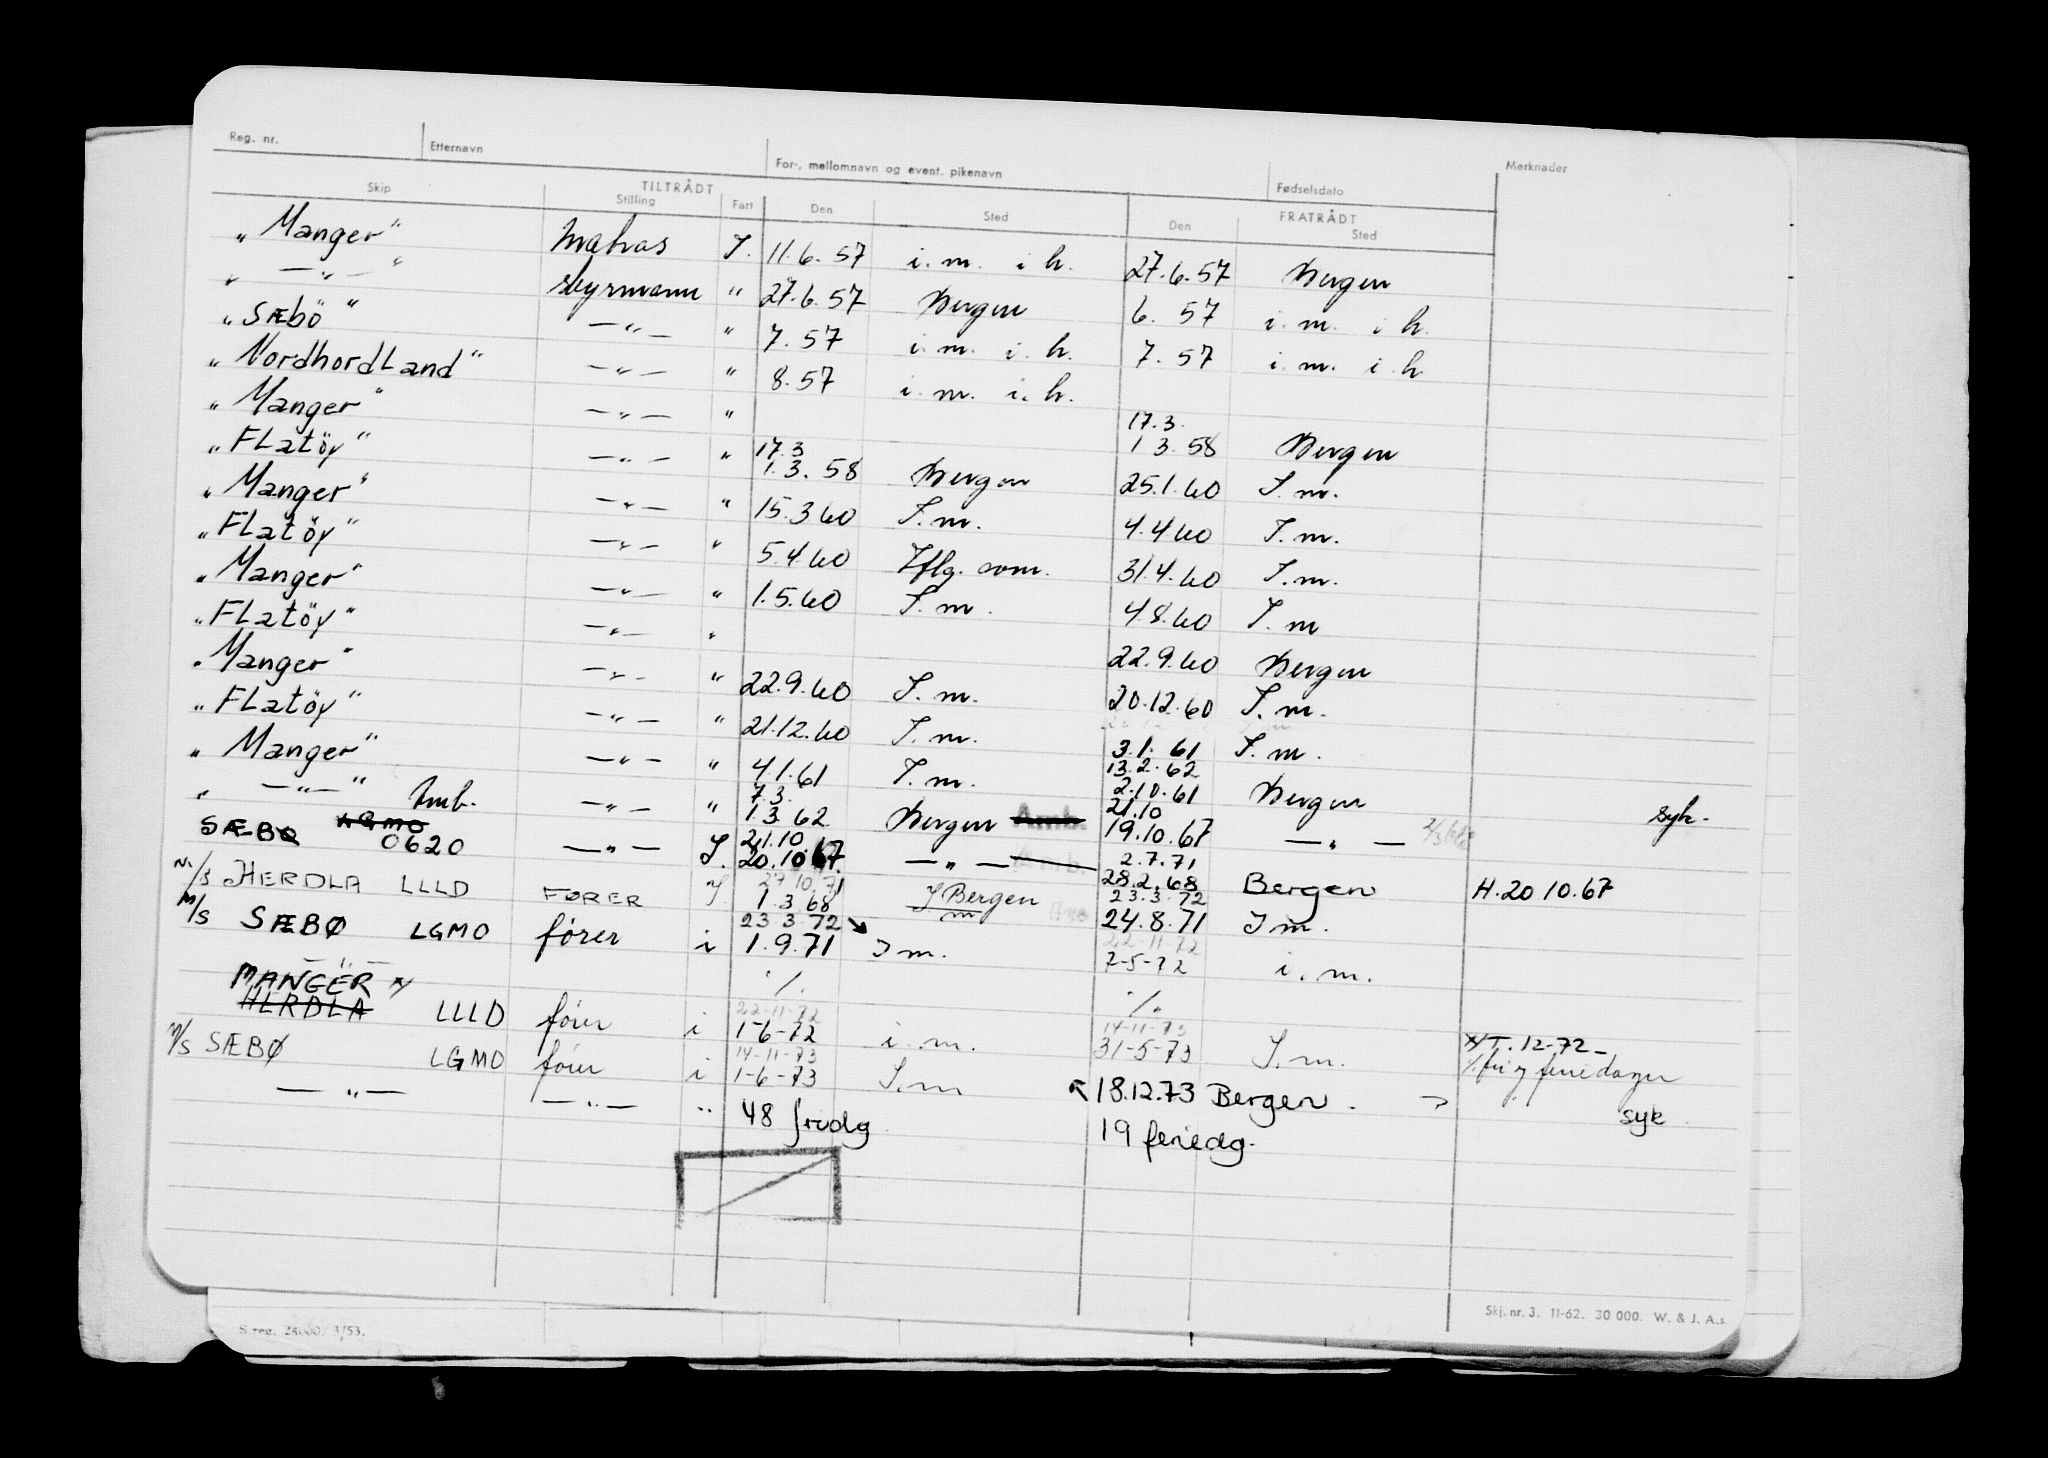 Reg. nr. Etternavn For-, mellomnavn og event. pikenavn Fødselsdato Merknader
TILTRÅDT FRATRÅDT
Skip Stilling Fart Den Sted Den Sted
"Manger" Matros J. 11.6.57 i.m. i h. 27.6.57 Bergen
" —"— " styrmann " 27.6.57 Bergen 6. 57 i.m. i h.
"SÆbö" —"— " 7.57 i.m. i.h. 7.57 i.m. i h
"NordhordLand" —"— " 8.57 i.m. i.h.
"Manger" —"— " 17.3. 1 3.58 Bergen
"FLatöy" —"— " 17.3 1.3.58 Bergen 25.1.60 I.m.
"Manger" —"— " 15.3 60 I.m. 4.4 60 I.m.
"FLatöy" —"— " 5.4 60 Iflg. som. 31.4.60 I.m.
"Manger" —"— " 1.5.60 I.m. 4.8.60 I.m
"FLatöy" —"— " 22.9.60 Bergen
"Manger" —"— " 22.9.60 I.m. 20.12.60 I.m.
"FLatöy" —"— " 21.12.60 I.m. 3.1.61 I.m.
"Manger" —"— " 4.1.61 I.m. 13.2.62 2.10.61 Bergen syk.
" —"— " Amb. —"— " 7.3. 1.3 62 Bergen Amb. 21.10 19.10.67 —"—
SÆBØ LGMO 0620 —"— I. 21.10. 20.10 67. —"— 2.7.71 28.2.68 Bergen H.20 10.67
M/S HERDLA LLLD FØRER I 27 10.71 1.3 68 I Bergen m 23.3.72 24.8.71 I m.
M/S SÆBØ LGMO fører i 23 3 72 1.9.71 I m. 22-11-72 7-5-72 i.m.
—"— ./. ./.
MANGER x/
HERDLA LLLD fører i 22-11-72 1-6-72 i.m. 14-11-73 31-5-73 I.m. x/ T. 12-72
M/S SÆBØ LGMO fører i 14-11-73 1-6-73 I.m 18.12.73 Bergen. ./. fri og feriedager
—"— —"— " 48 fridg 19 feriedg. syk
Skj. nr. 3. 11-62. 30 000. W. & J. A.s.
S reg. 24000. 3/53.